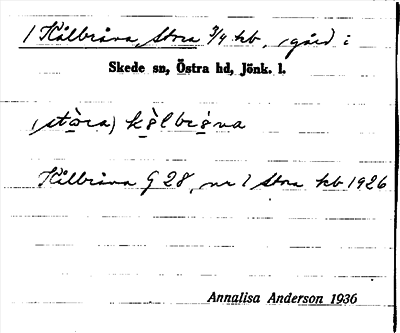 1 Kålbråna, Stora 3/4 hb., gård i
Skede sn, Östra hd, Jönk. l.
(stòra) kålbrå̀na
Kålbråna G 28, nr 1 Stora hb 1926
Annalisa Anderson 1936